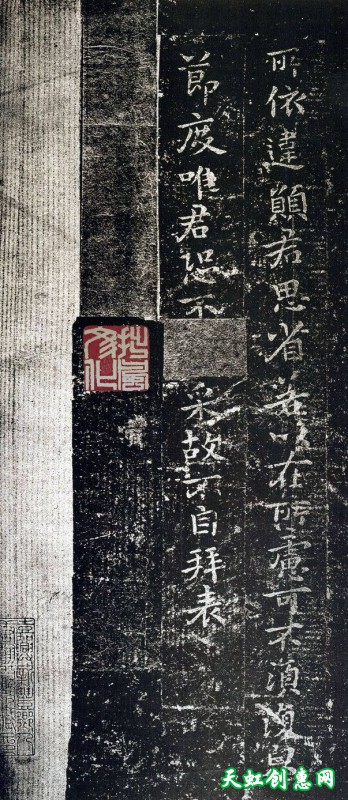 所依違願君思省若以在所慮可不須復皃
節度唯君恐不采故不自拜表
天虹创惠网